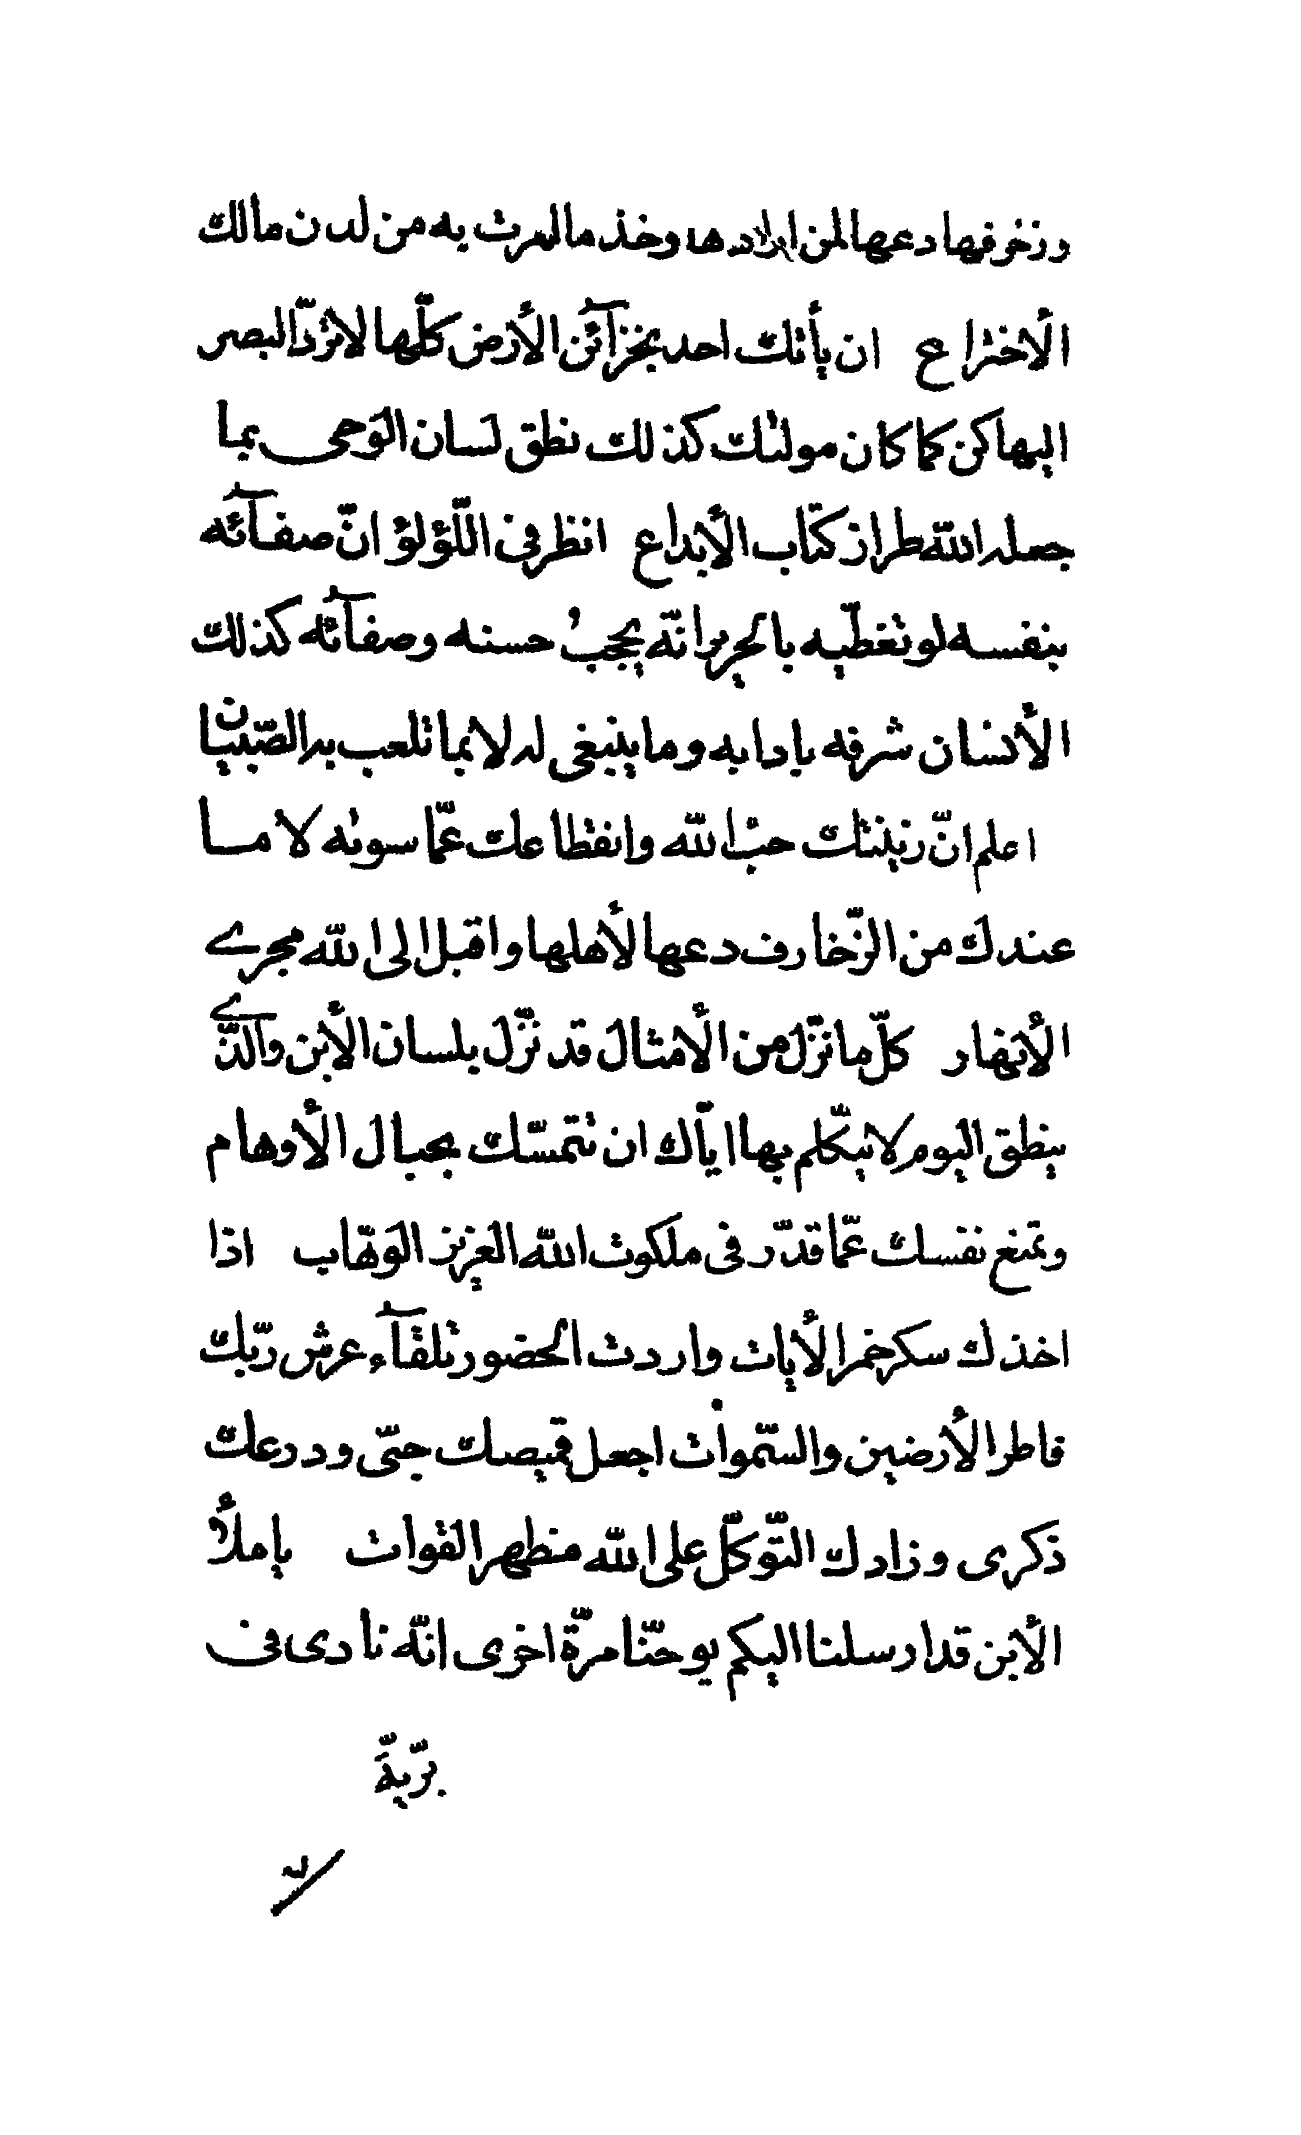 و زخرفها دعها لمن ارادها وخذ ما امرت به من لدن مالك
الأختراع ان يأتك احد بخزآئن الأرض كلّها لا تردّ البصر
اليها كن كما كان موليٰك كذلك نطق لسان الوحى بما
جعله الله طراز كتاب الأبداع انظر فى اللّؤلؤ انّ صفآئه
بنفسه لو تغطّيه بالحرير انّه يحجب حسنه وصفآئه كذلك
الأنسان شرفه بادابه وما ينبغى له لا بما تلعب به الصّبيان
اعلم انّ زينتك حبّ الله وانقطاعك عمّا سويٰه لا ما
عندك من الزّخارف دعها لأهلها واقبل الى الله مجرے
الأنهار كلّ ما نزّل من الأمثال قد نزّل بلسان الأبن والّذے
ينطق اليوم لا يتكّلم بها ايّاك ان تتمسّك بحبال الأوهام
وتمنع نفسك عمّا قدّر فى ملكوت الله العزيز الوهّاب اذا
اخذك سكر خمر الأيات واردت الحضور تلقآء عرش ربّك
فاطر الأرضين والسّموات اجعل قميصك حبّى ودرعك
ذكرى وزادك التّوكّل على الله مظهر القوات يا ملأ
الأبن قد ارسلنا اليكم يوحنّا مرّة اخرى انّه نادى فى
برّيّة